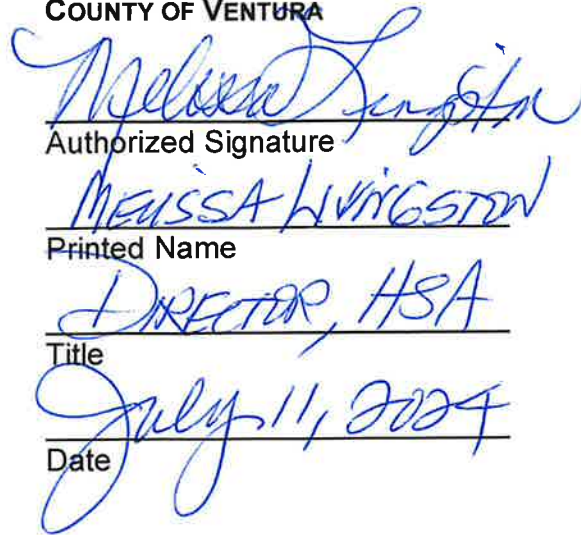 COUNTY OF VENTURA
Melissa Livingston
Authorized Signature
MELISSA LIVINGSTON
Printed Name
DIRECTOR, HSA
Title
July 11, 2024
Date